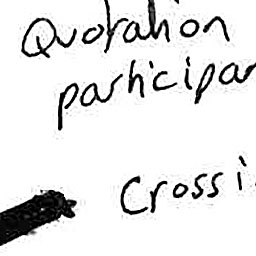 Quotation
participan
Crossi